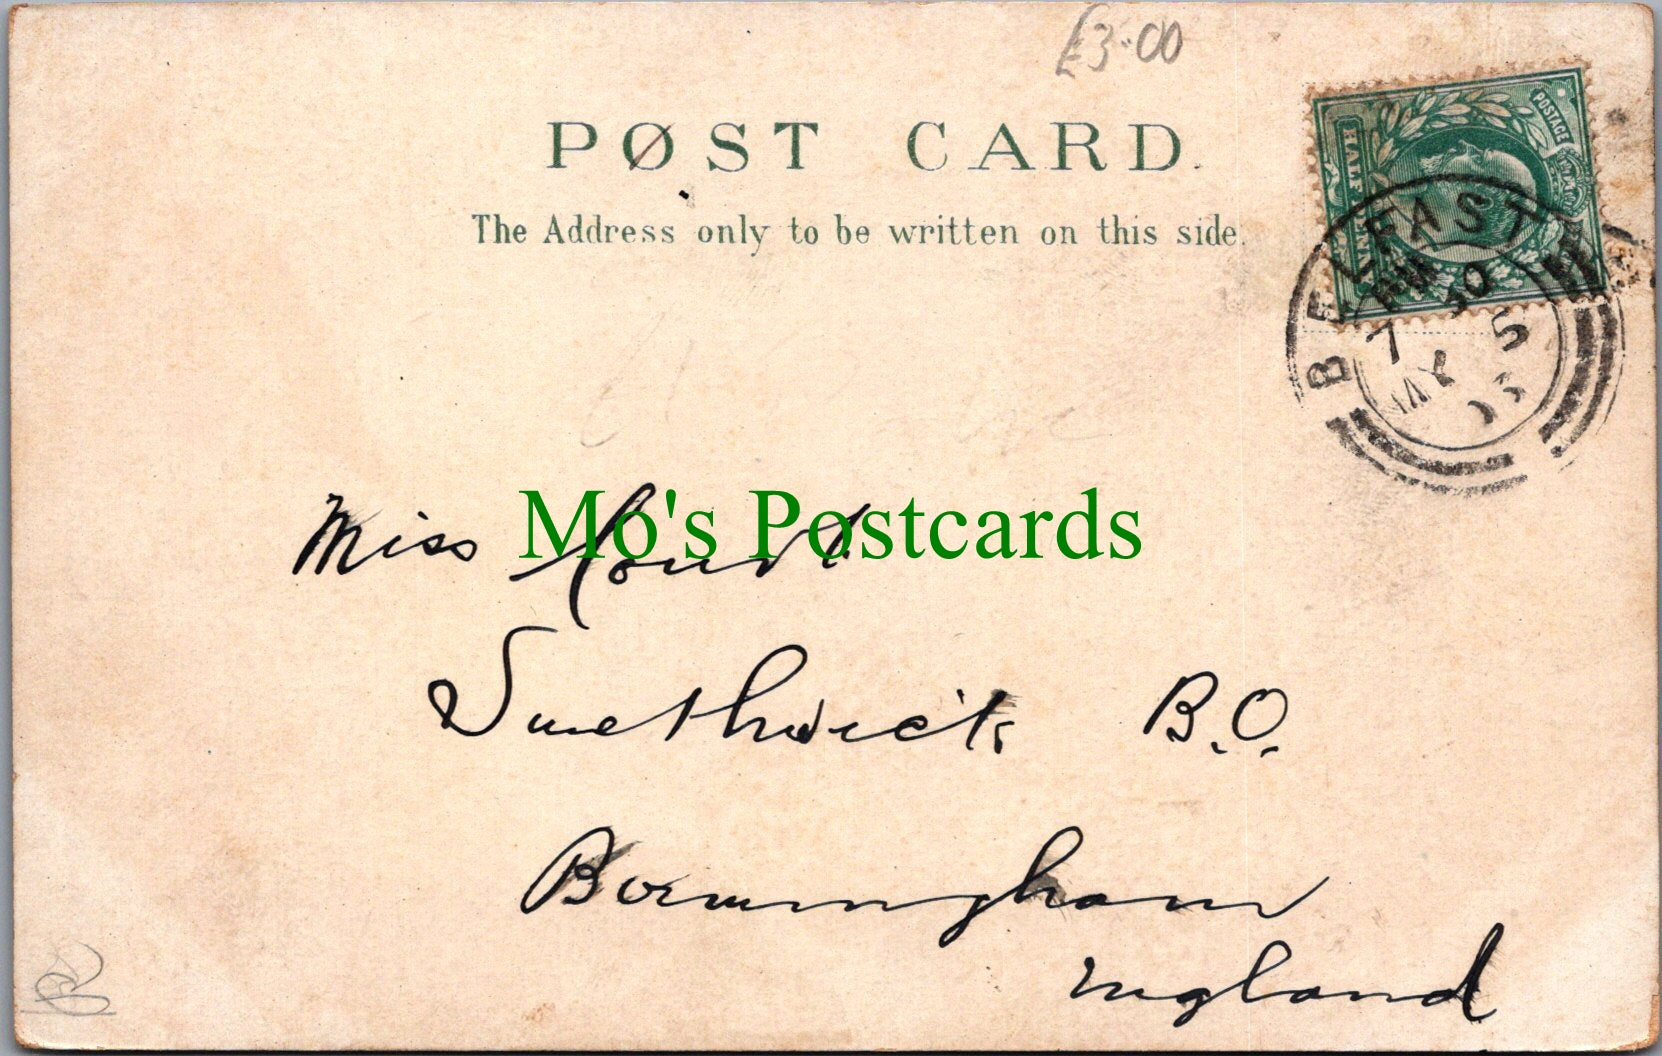 £3.00
POST CARD.
The Address only to be written on this side.
POSTAGE
HALF
BELFAST
AM
7 30
MY 5
Mo's Postcards
Miss
Smethwick B.O.
Birmingham
England